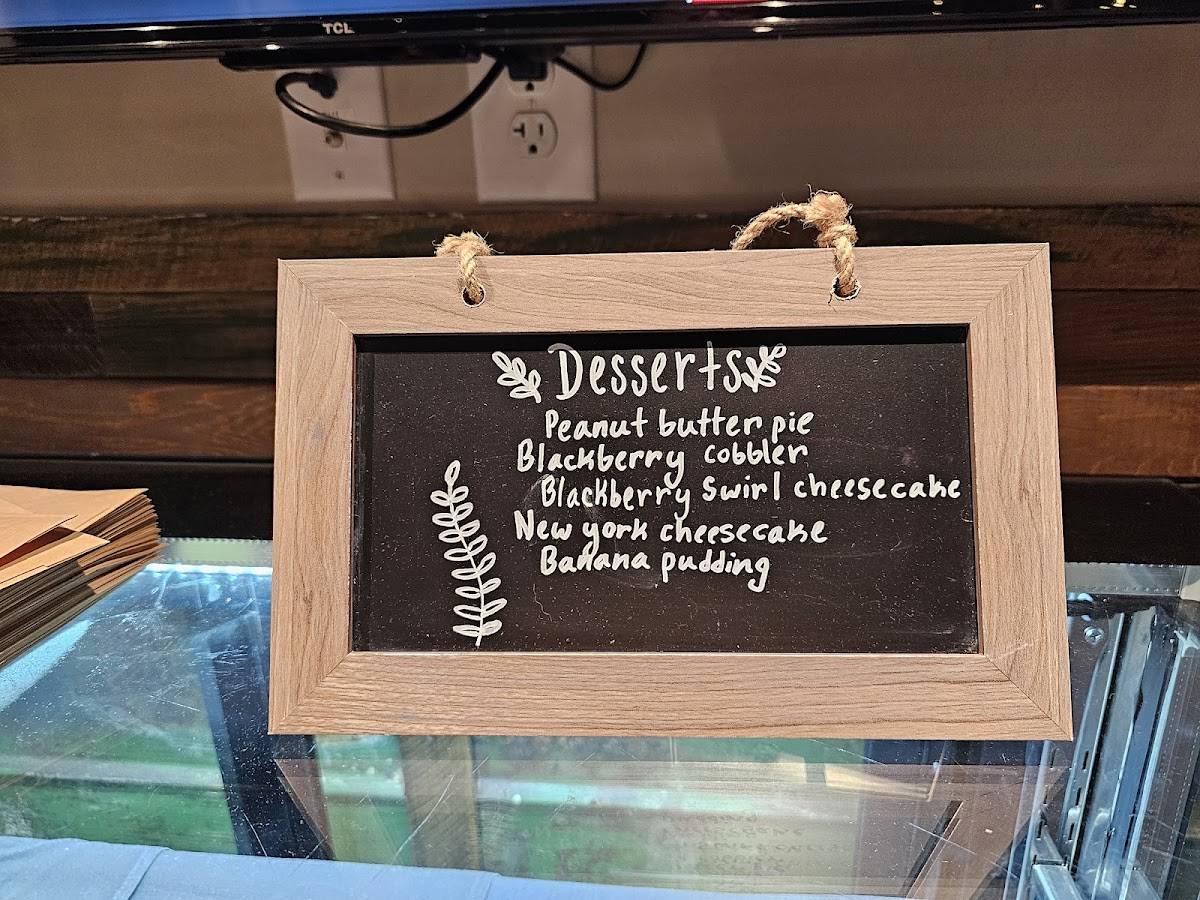 TCL
Desserts
Peanut butter pie
Blackberry cobbler
Blackberry Swirl cheesecake
New york cheesecake
Banana pudding